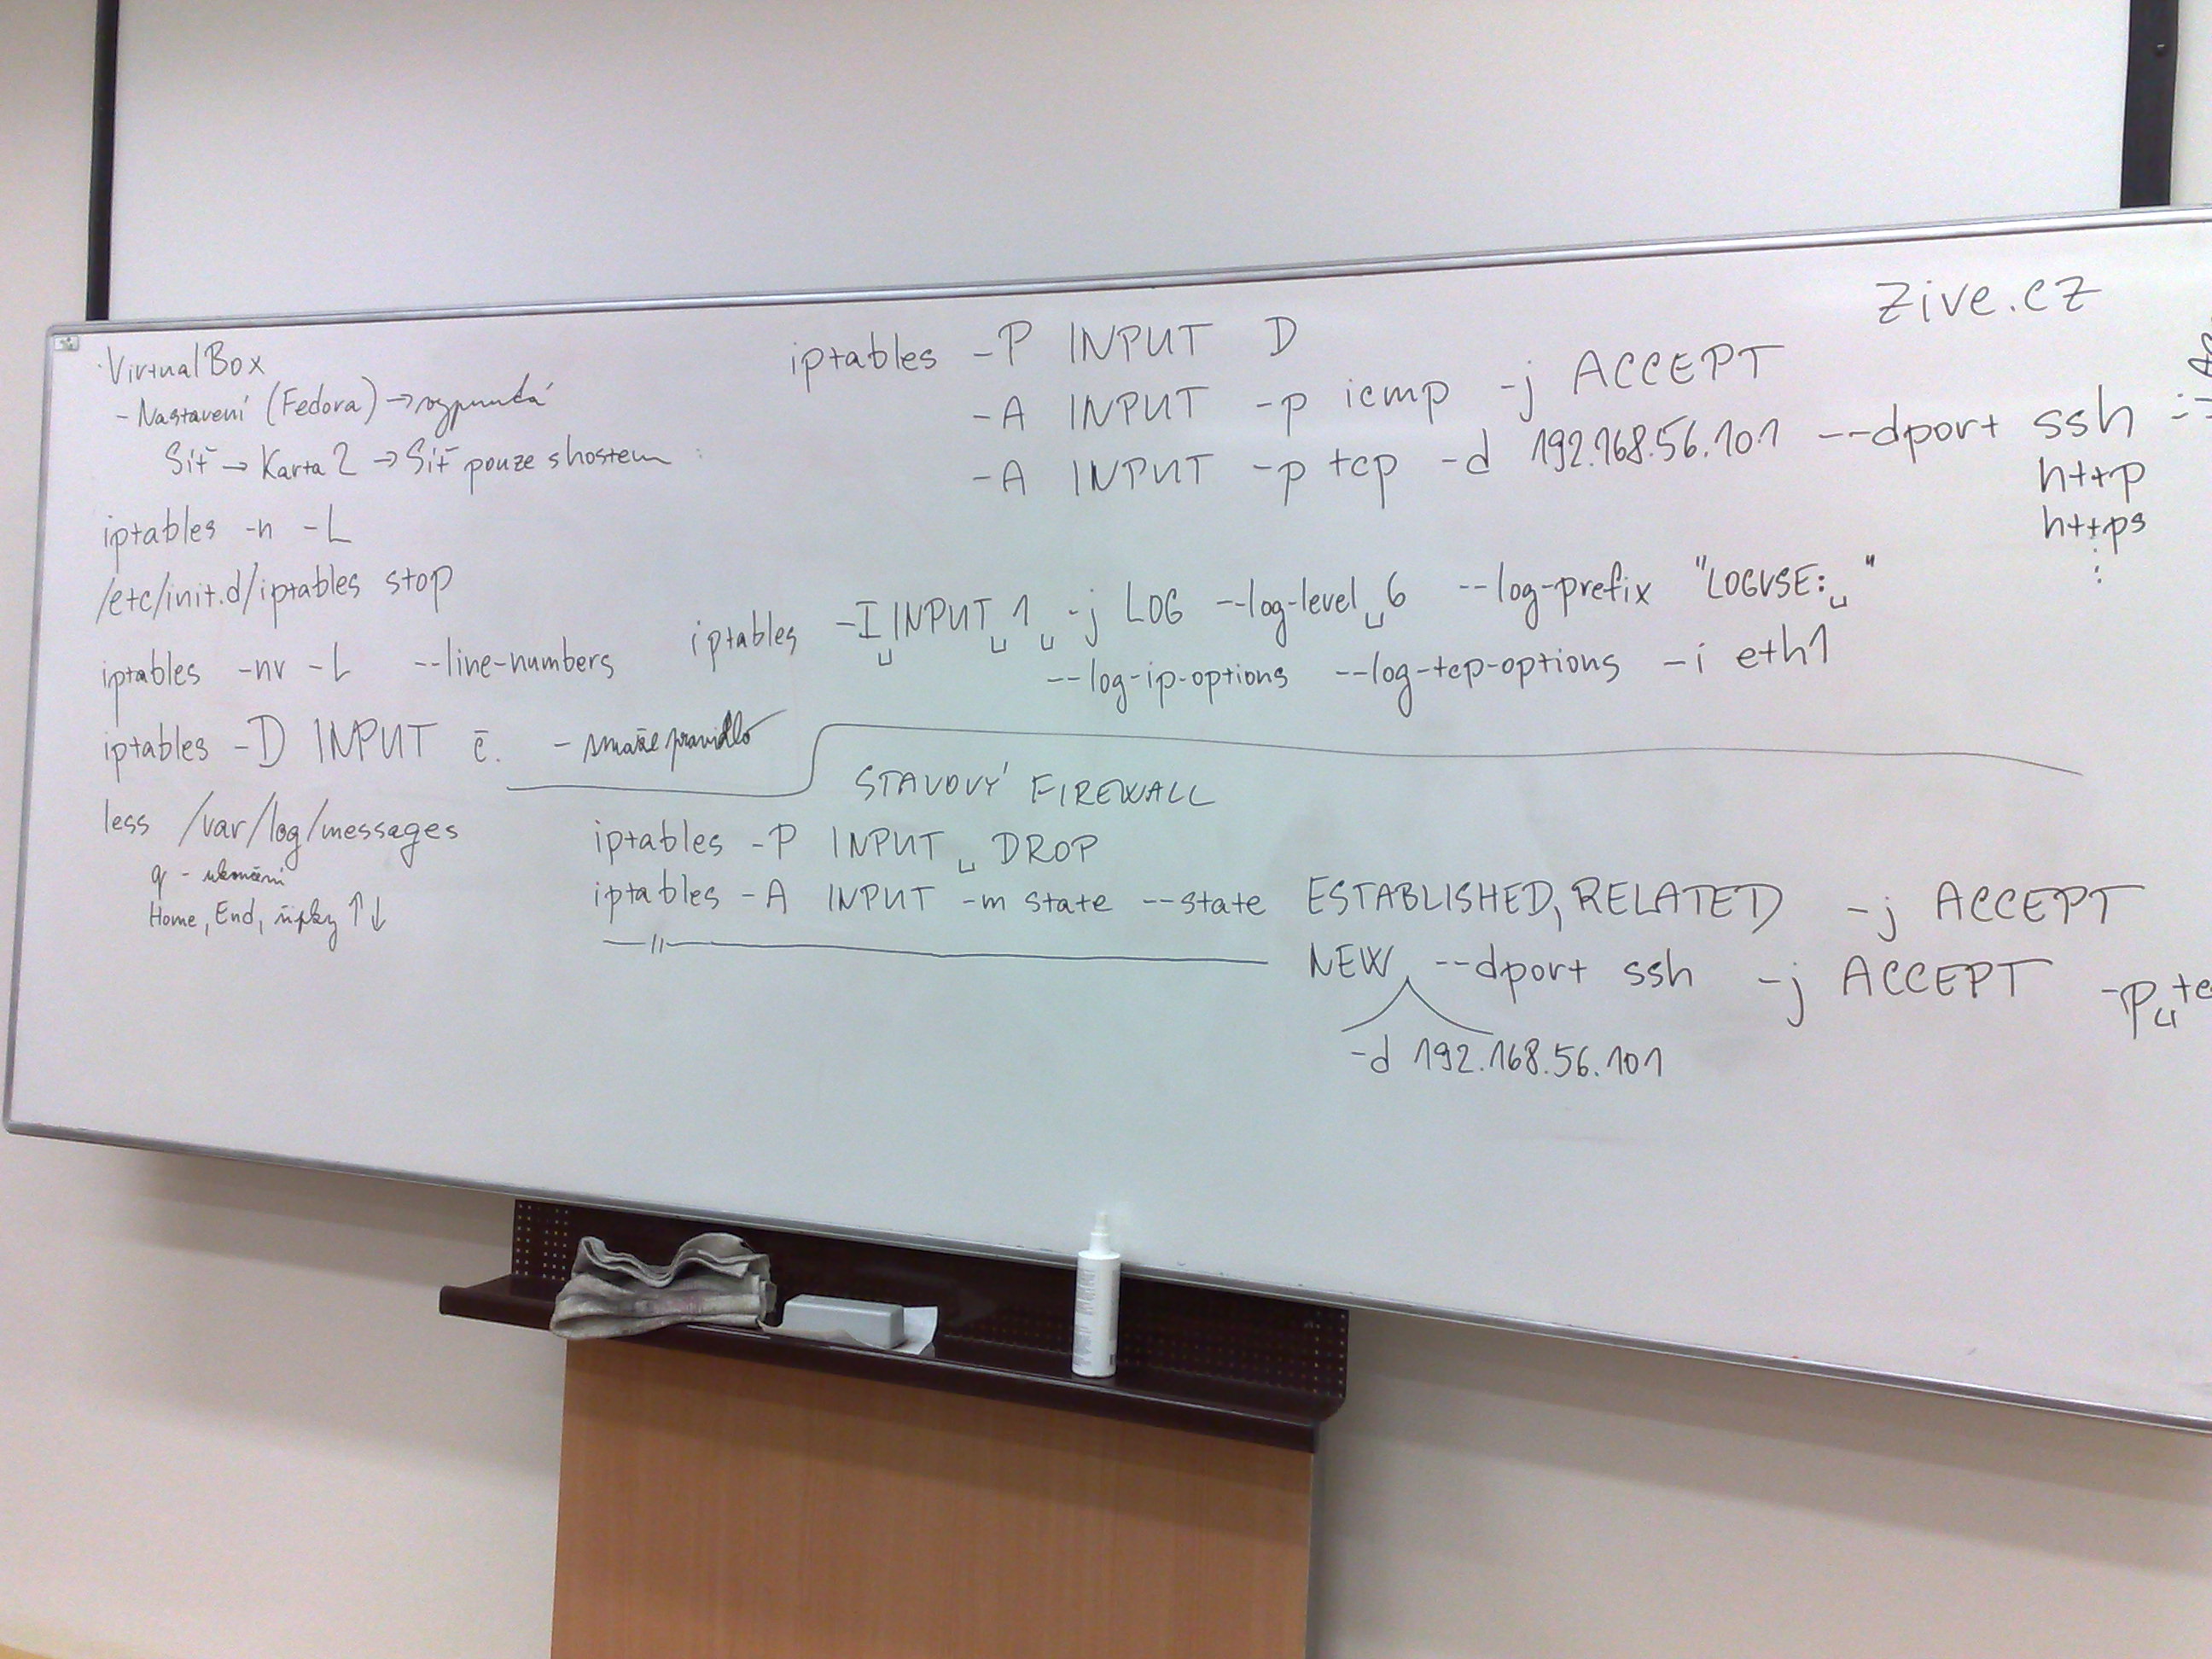 VirtualBox
- Nastavení (Fedora) → vypnutá
Síť → Karta 2 → Síť pouze s hostem
iptables -n -L
/etc/init.d/iptables stop
iptables -nv -L --line-numbers
iptables -D INPUT č. - smaže pravidlo
less /var/log/messages
q - ukončení
Home, End, šipky ↑↓
zive.cz
iptables -P INPUT D
-A INPUT -p icmp -j ACCEPT
-A INPUT -p tcp -d 192.168.56.101 --dport ssh
http
https
⋮
iptables -I␣INPUT␣1␣-j LOG --log-level␣6 --log-prefix "LOGVSE:␣"
--log-ip-options --log-tcp-options -i eth1
STAVOVÝ FIREWALL
iptables -P INPUT␣DROP
iptables -A INPUT -m state --state ESTABLISHED,RELATED -j ACCEPT
—〃— NEW --dport ssh -j ACCEPT -p␣
-d 192.168.56.101